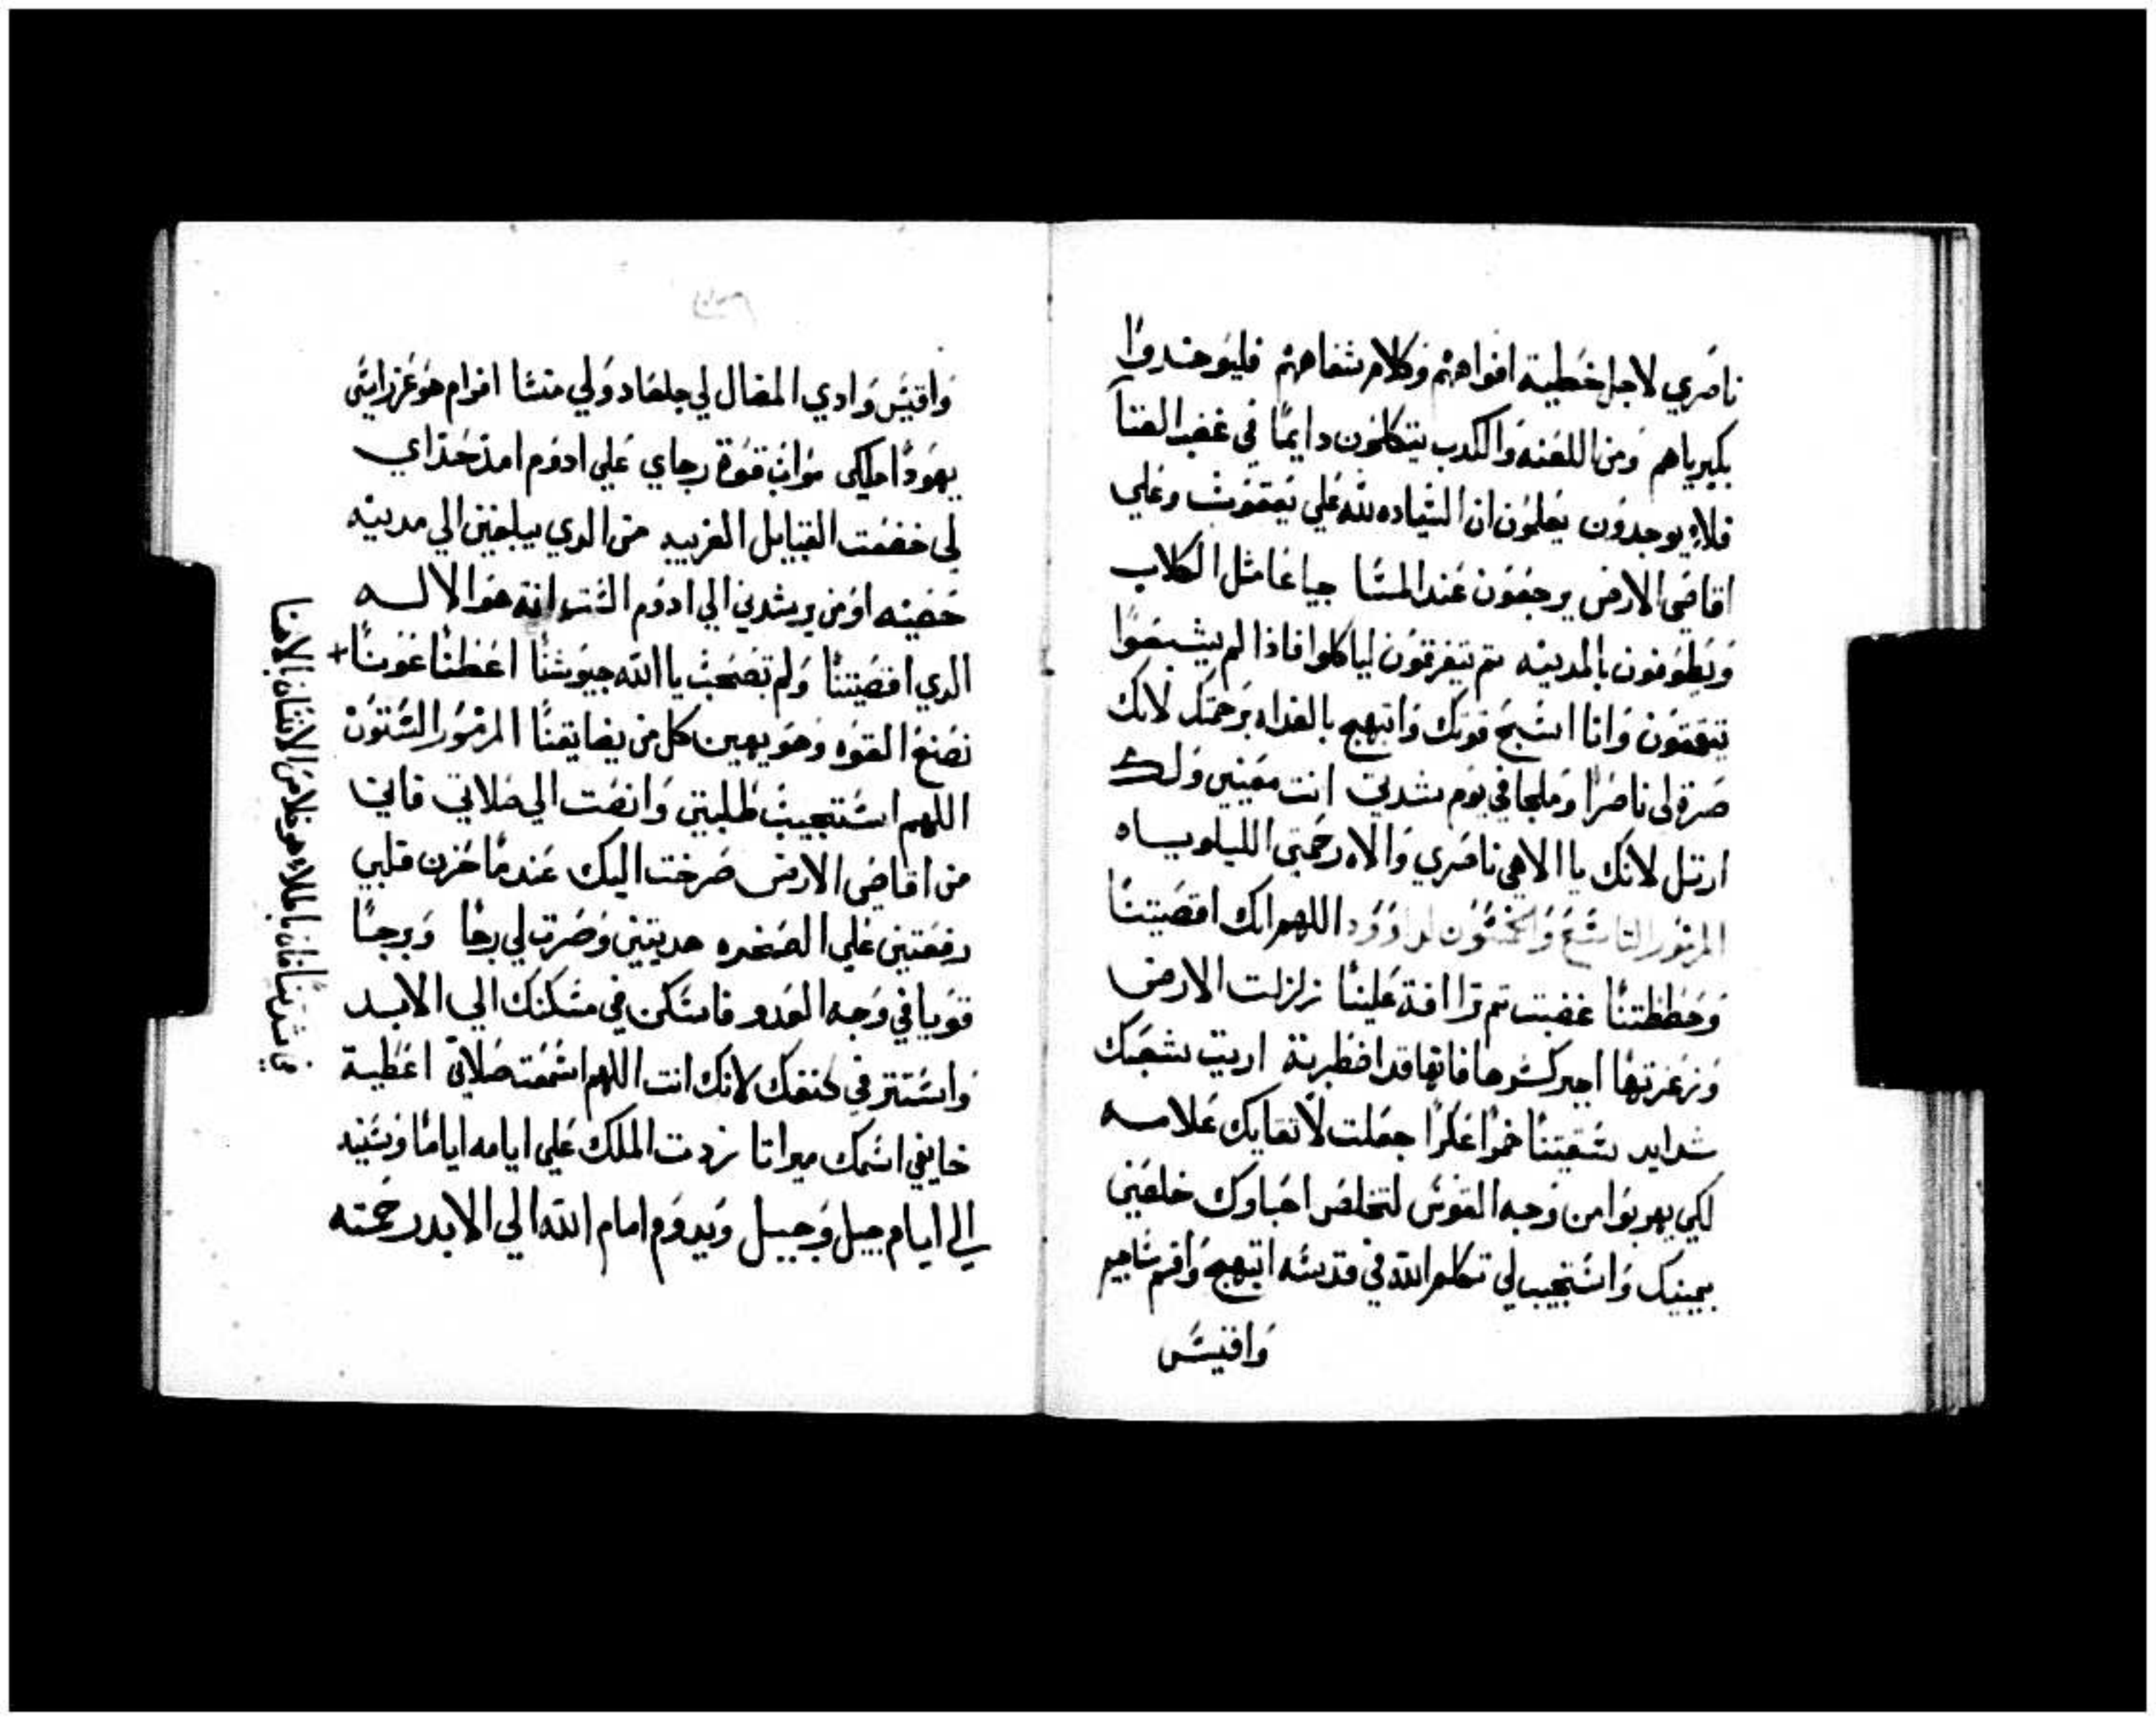 ناصري لاجل خطية افواههم وكلام شفاههم فليوخدوا
بكبرياهم ومن اللعنه والكدب يتكلمون دايما في غضب الفنا
فلا يوجدون يعلمون ان السياده لله علي يعقوب وعلي
اقاصي الارض يرجعون عند المسا جياعا مثل الكلاب
ويطوفون بالمدينه تم يتفرقون لياكلوا فاذا لم يشبعوا
يتقمقون وانا اسبح قوتك وابتهج بالغداه برحمتك لانك
صرة لي ناصرا وملجا في يوم شدتي انت معيني ولك
ارتل لانك يا الاهي ناصري والاه رحمتي الليلوياه
المزمور التاسع والخمسون لداوود اللهم انك اقصيتنا
وحططتنا غضبت تم تراافة علينا زلزلت الارض
وزعزعتها اجبر كسرها فانها قد اضطربة اريت شعبك
شدايد سقيتنا خمرا عكرا جعلت لاتقايك علامه
لكي يهربوا من وجه القوس لتخلص احباوك خلصني
بيمينك واستجيب لي تكلم الله في قدسه ابتهج واقسم شاجيم
واقيس
واقيس وادي المضال لي جلعاد ولي منسا افرام هو عز راسي
يهودا ملكي مواب قوة رجاي علي ادوم امد حداي
لي خضعت القبايل الغريبه من الدي يبلغني الي مدينه
حصينه او من يرشدني الي ادوم الست انة هو الاله
الدي اقصيتنا ولم تصحب يا الله جيوشنا اعطنا عونا+
نصنع القوه وهو يهين كل من يضايقنا المزمور الستون
اللهم استجيب طلبتي وانصت الي صلاتي فاني
من اقاصي الارض صرخت اليك عندما حزن قلبي
رفعتني علي الصخره هديتني وصرت لي رجا وبرجا
قويا في وجه العدو فاسكن في مسكنك الي الابد
واستتر في كنفك لانك انت اللهم اسمعت صلاتي اعطية
خايفي اسمك ميراتا زدت الملك علي ايامه اياما وسنيه
الي ايام جيل وجيل ويدوم امام الله الي الابد رحمته
في شدتنا فان باطلا هو خلاص الانسان بالاهنا